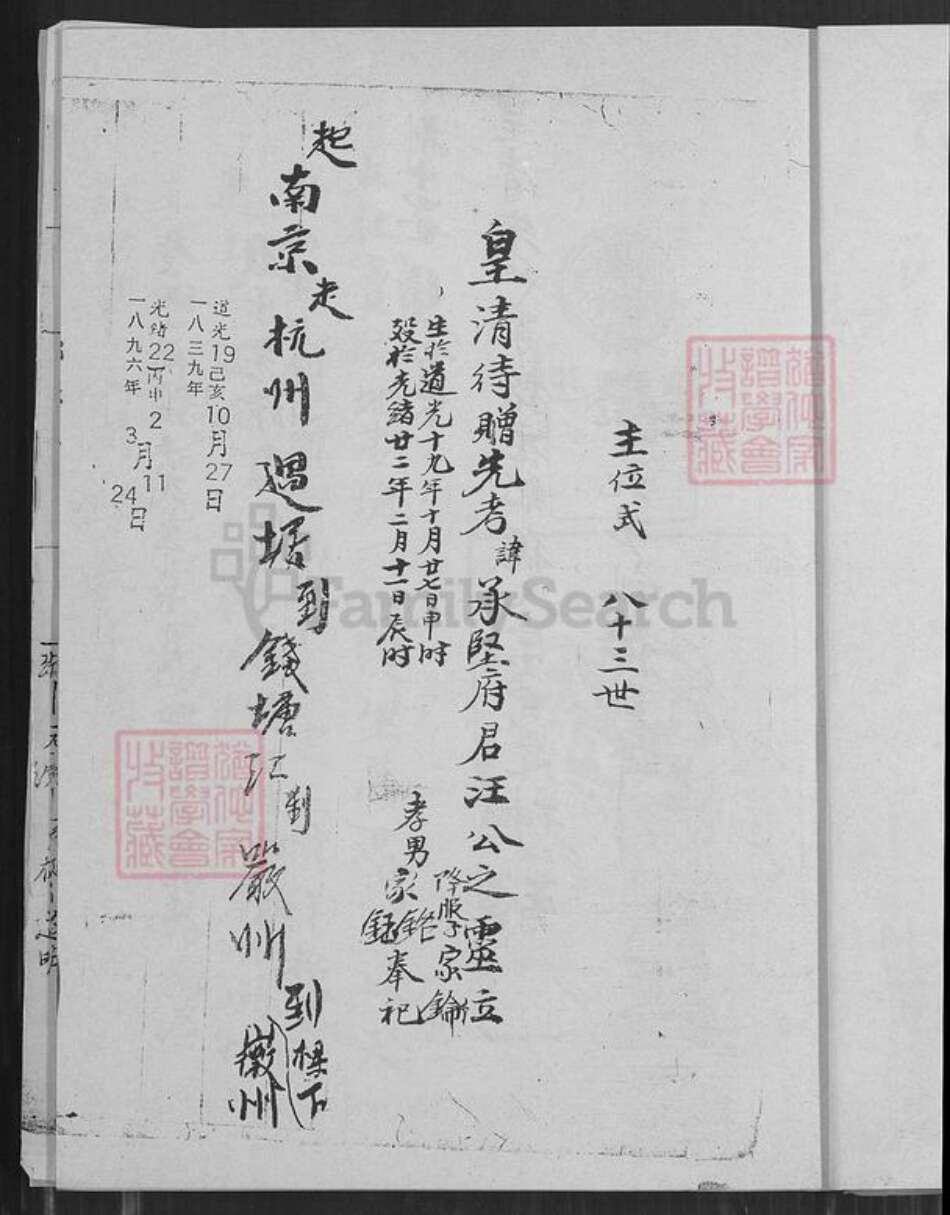 主位式 八十三世
皇清待贈先考諱承堅府君汪公之靈位
生於道光十九年十月廿七日申时
歿於光緒廿二年二月十一日辰时
降服子家錀
孝男家銘奉祀
起南京走杭州過塘到錢塘江到嚴州到樑下徽州
道光19己亥10月27日
一八三九年
光緒22丙申2月11日
22
一八九六年 3 24
FamilySearch